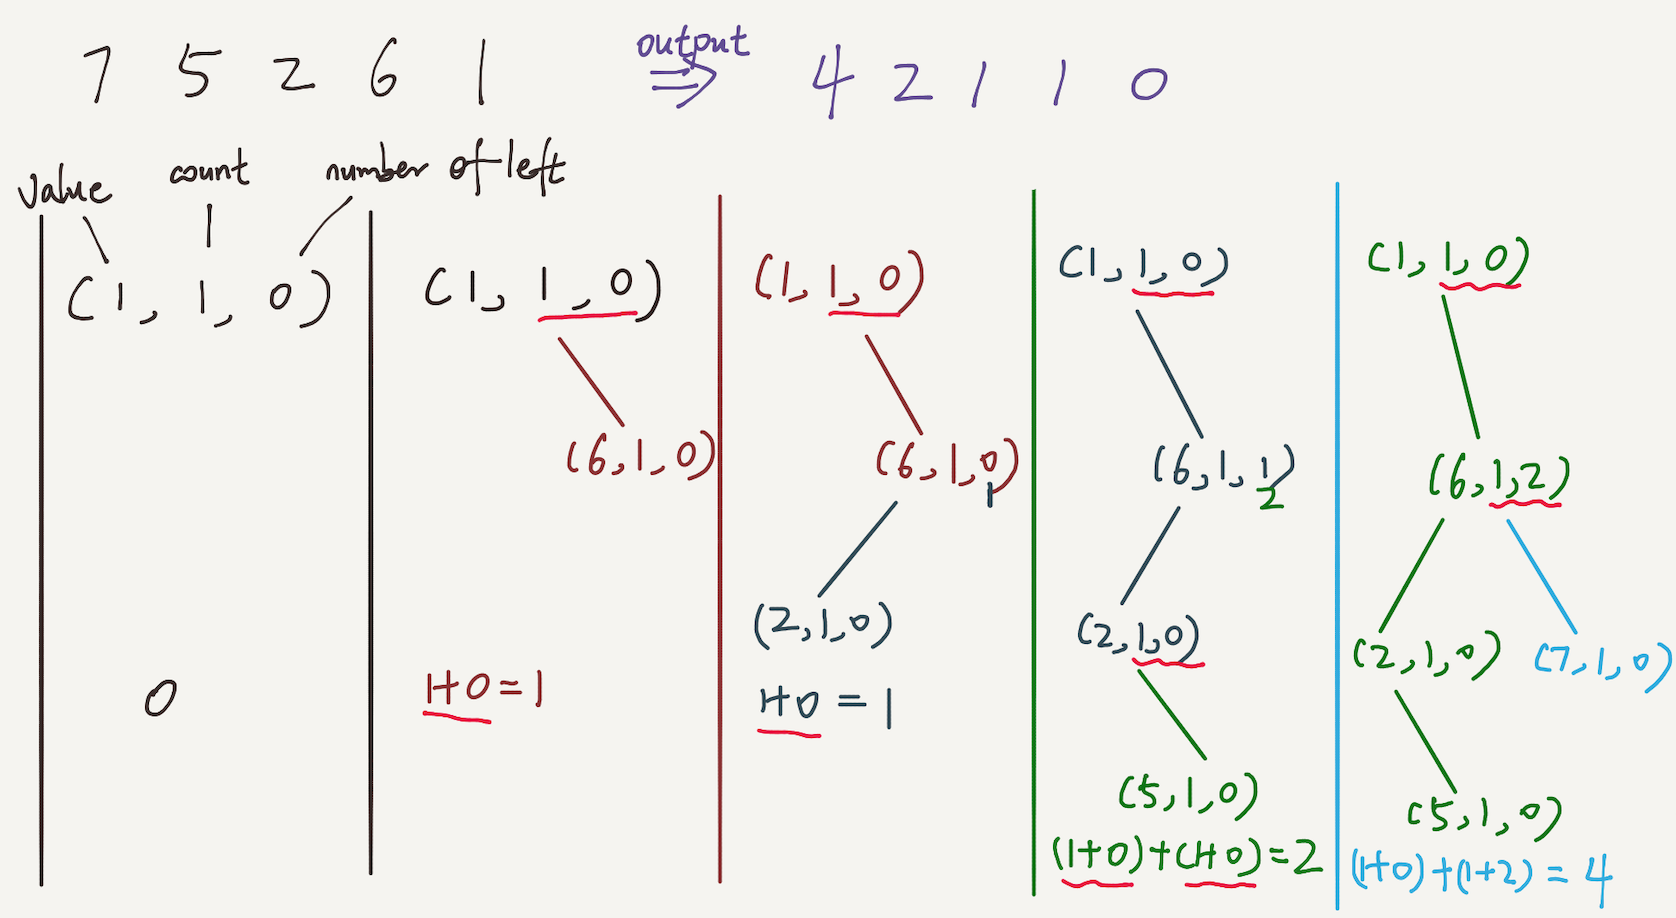 7 5 2 6 1 output ⇒ 4 2 1 1 0
value count number of left
(1, 1, 0)
0
(1, 1, 0)
(6, 1, 0)
1+0=1
(1, 1, 0)
(6, 1, 0)
1
(2, 1, 0)
1+0=1
(1, 1, 0)
(6, 1, 1)
2
(2, 1, 0)
(5, 1, 0)
(1+0)+(1+0)=2
(1, 1, 0)
(6, 1, 2)
(2, 1, 0) (7, 1, 0)
(5, 1, 0)
(1+0)+(1+2)=4